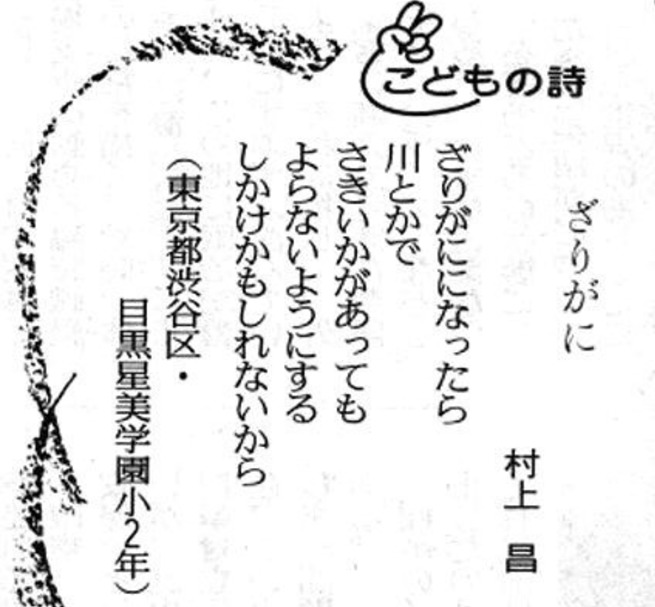 こどもの詩
ざりがに
村上 昌
ざりがにになったら
川とかで
さきいかがあっても
よらないようにする
しかけかもしれないから
（東京都渋谷区・
目黒星美学園小2年）